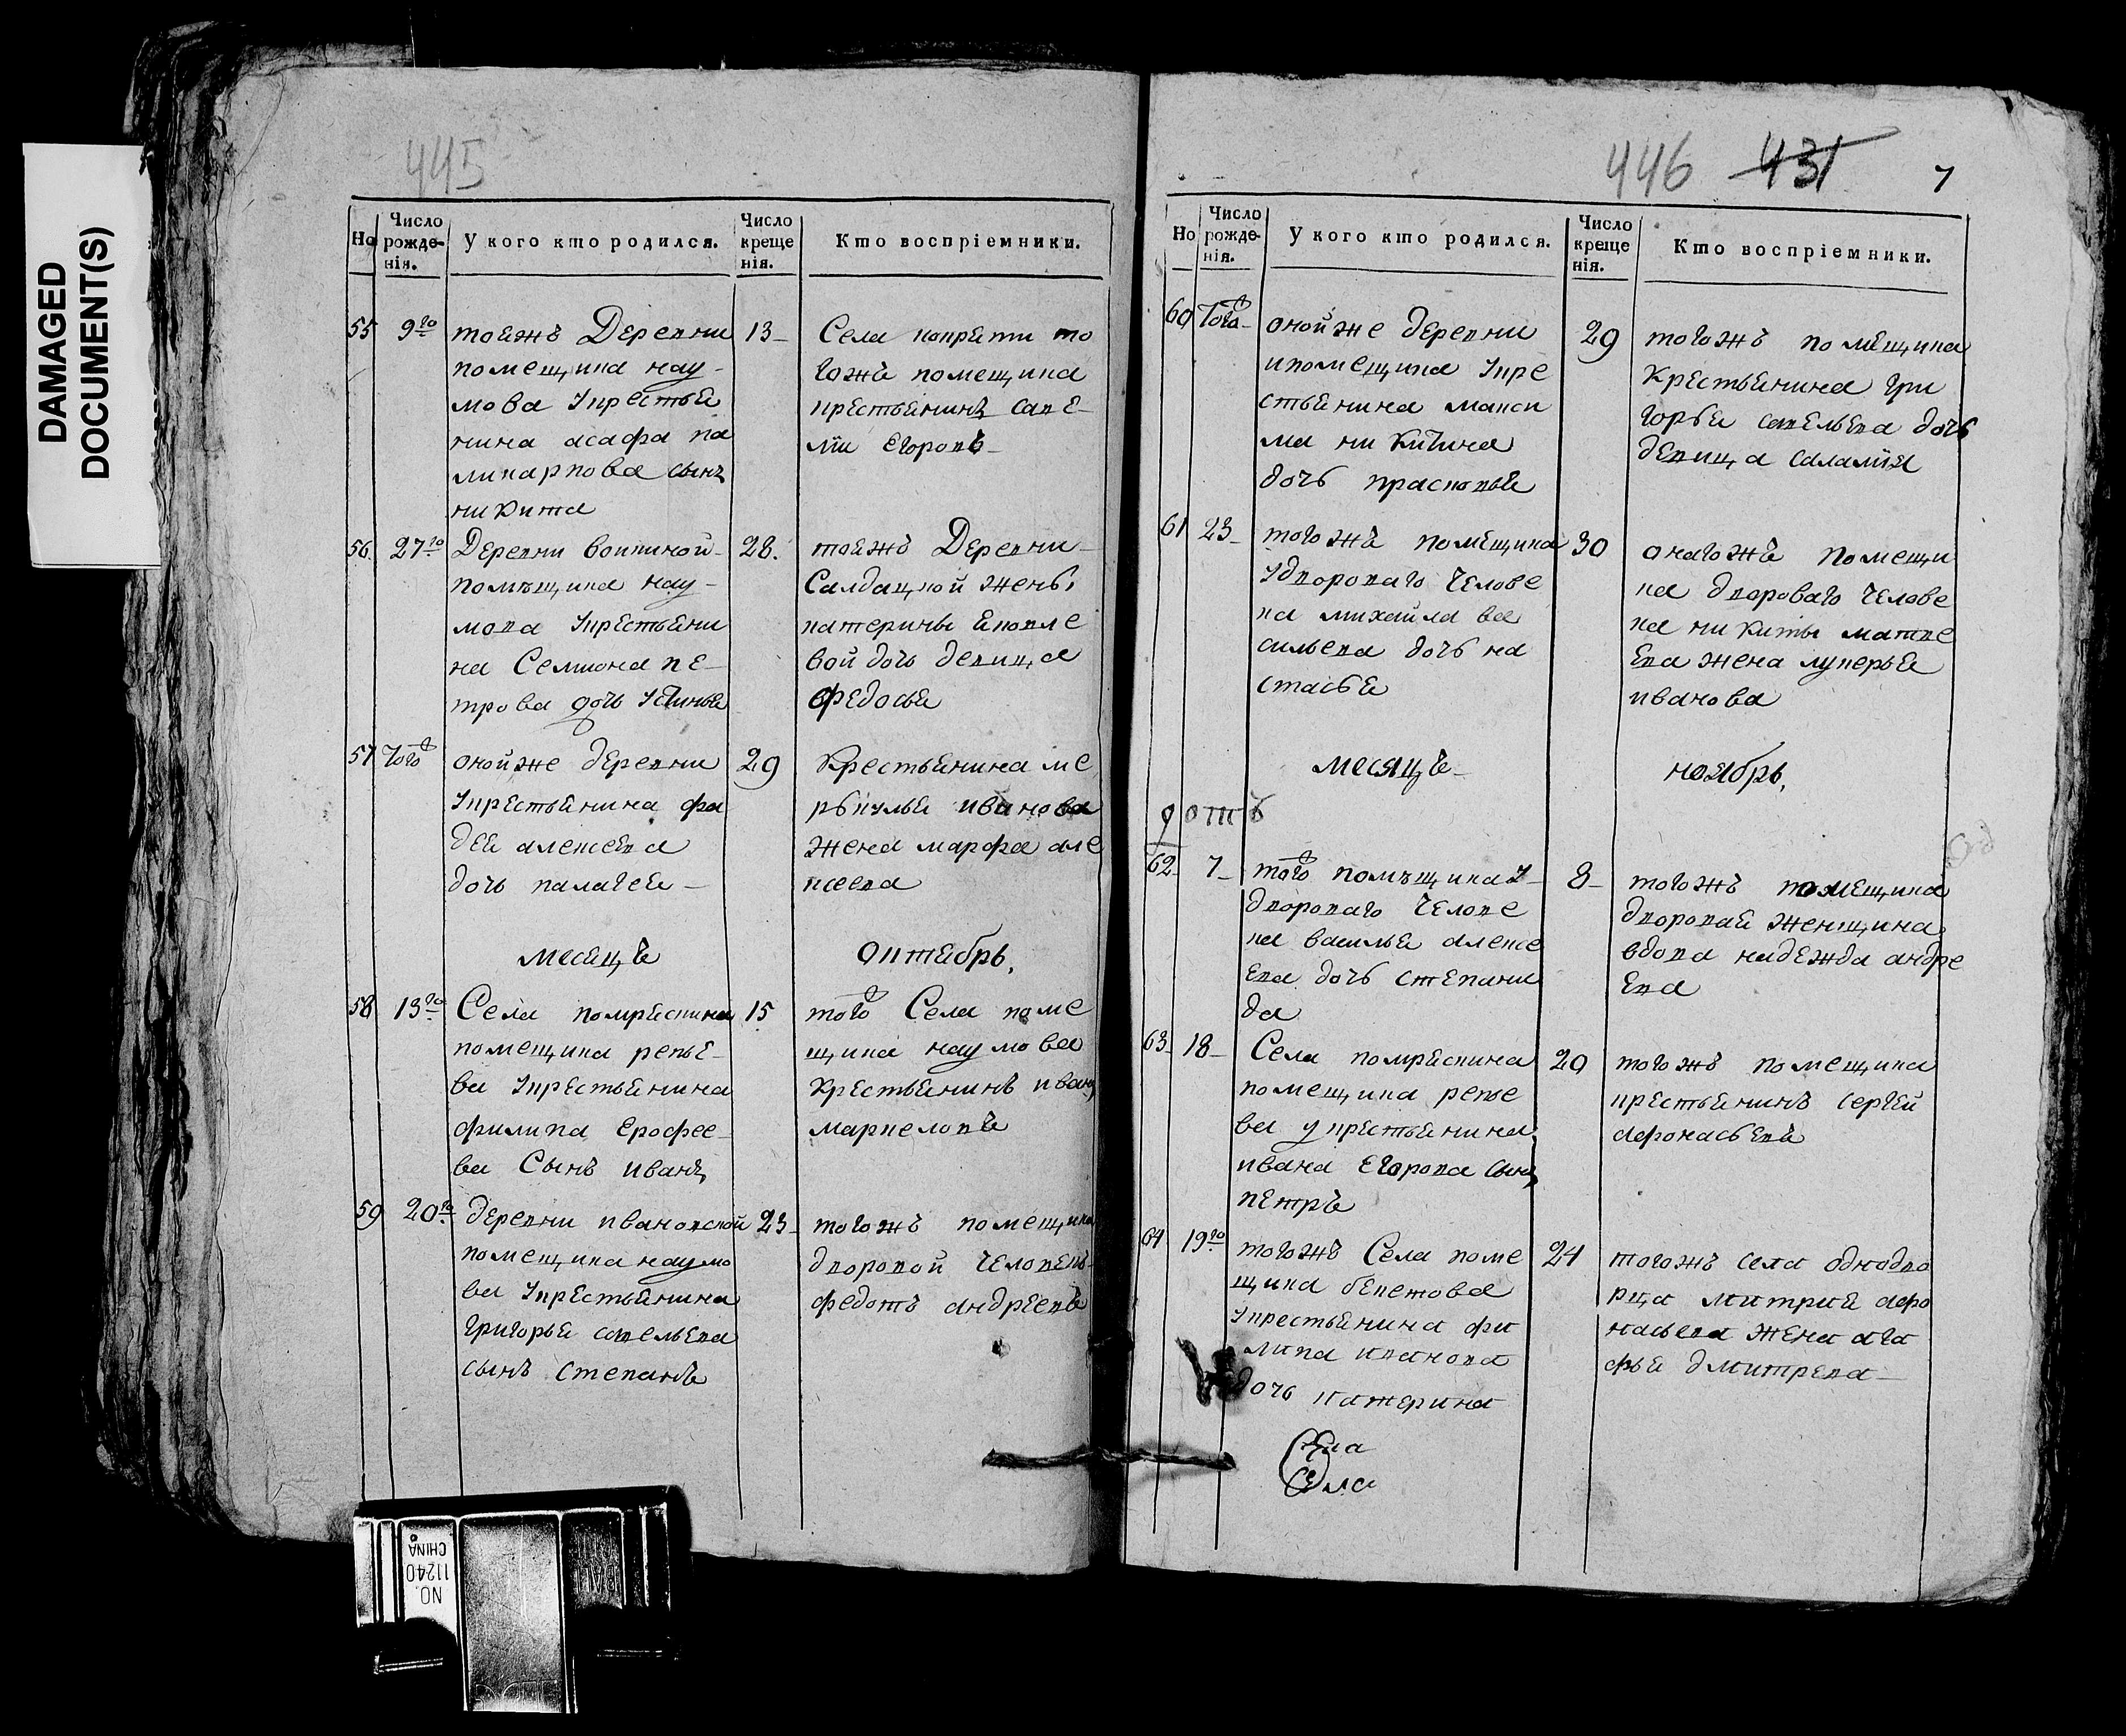 DAMAGED
DOCUMENT(S)
445
Но
Число рожде-нія.
У кого кто родился.
Число креще нія.
Кто воспріемники.
55 9го тояжъ Деревни 13
помещика нау-
мова укрестья
нина асафа па
ликарпова сынъ
никита
Села
гожъ помещика
крестьянинъ саве-
лiи егоровъ
56. 27го Деревни воининой 28.
помъщика нау-
мова укрестьяни
на Семиона пе-
трова дочь устинья
тояжъ Деревни
Салдацкой жены
катерины яковле
вой дочь девица
федосья
57 Того оной же деревни 29
укрестьянина фа
дея алексеева
дочь палагея
Крестьянина ме
ркулья иванова
жена марфа але
ксеева
месяцъ октябрь.
58 13го Села покряскина 15
помещика репье-
ва укрестьянина
филипа ерофее-
ва Сынъ иванъ
того Села поме
щика наумова
Крестьянинъ иванъ
маркеловъ
59 20го деревни ивановской 23
помещика наумо
ва укрестьянина
григорья савельева
сынъ степанъ
тогожъ помещика
дворовой человекъ
федотъ андреевъ
446 431 7
Но
Число рожде-нія.
У кого кто родился.
Число креще нія.
Кто воспріемники.
60 Того оной же деревни 29
ипомещика укре
стьянина макси
ма никитина
дочь прасковья
тогожъ помещика
Крестьянина гри
горья савельева дочь
девица саламiя
61 23 тогожъ помещика 30
удвороваго челове
ка михайла ва
сильева дочь на
стасья
онагожъ помещи
ка двороваго челове
ка никиты матве
ева жена лукерья
иванова
месяцъ ноябрь.
62 7 того помъщика у 8
двороваго челове
ка василья алексе
ева дочь степани
да
тогожъ помещика
дворовая женщина
вдова надежда андре
ева
63 18 Села покряскина 20
помещика репье
ва укрестьянина
ивана егорова сынъ
петръ
тогожъ помещика
крестьянинъ сергей
афонасьевъ
64 19го тогожъ Села поме 24
щика бекетова
укрестьянина фи
липа иванова
дочь катерина
тогожъ села однодво
рца митрия афо
насьева жена ага
фья дмитрева
Села
NO. 11240
CHINA